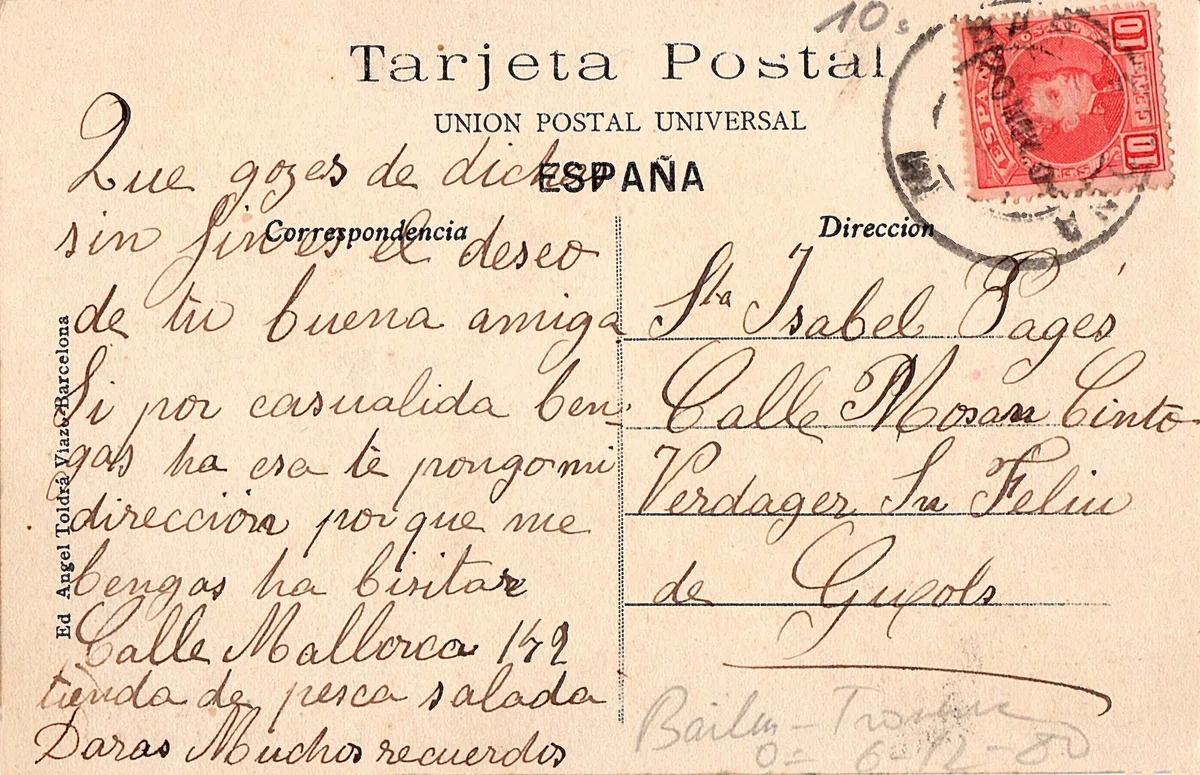 10s
Tarjeta Postal
UNION POSTAL UNIVERSAL
ESPAÑA
Correspondencia
Que gozes de dichas
sin fin es el deseo
de tu buena amiga
Si por casualida ben-
gas ha esa te pongo mi
dirección porque me
bengas ha bisitar
Calle Mallorca 142
tienda de pesca salada
Daras Muchos recuerdos
Direccion
Sta Isabel Pagés
Calle Mosan Cinto
Verdager Sn Feliu
de Guxols
Ed Angel Toldrá Viazo Barcelona
ESPAÑA
10 CENT 10
6-12-80